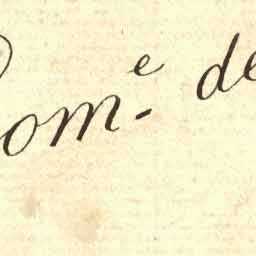 Rom.ᵉ de